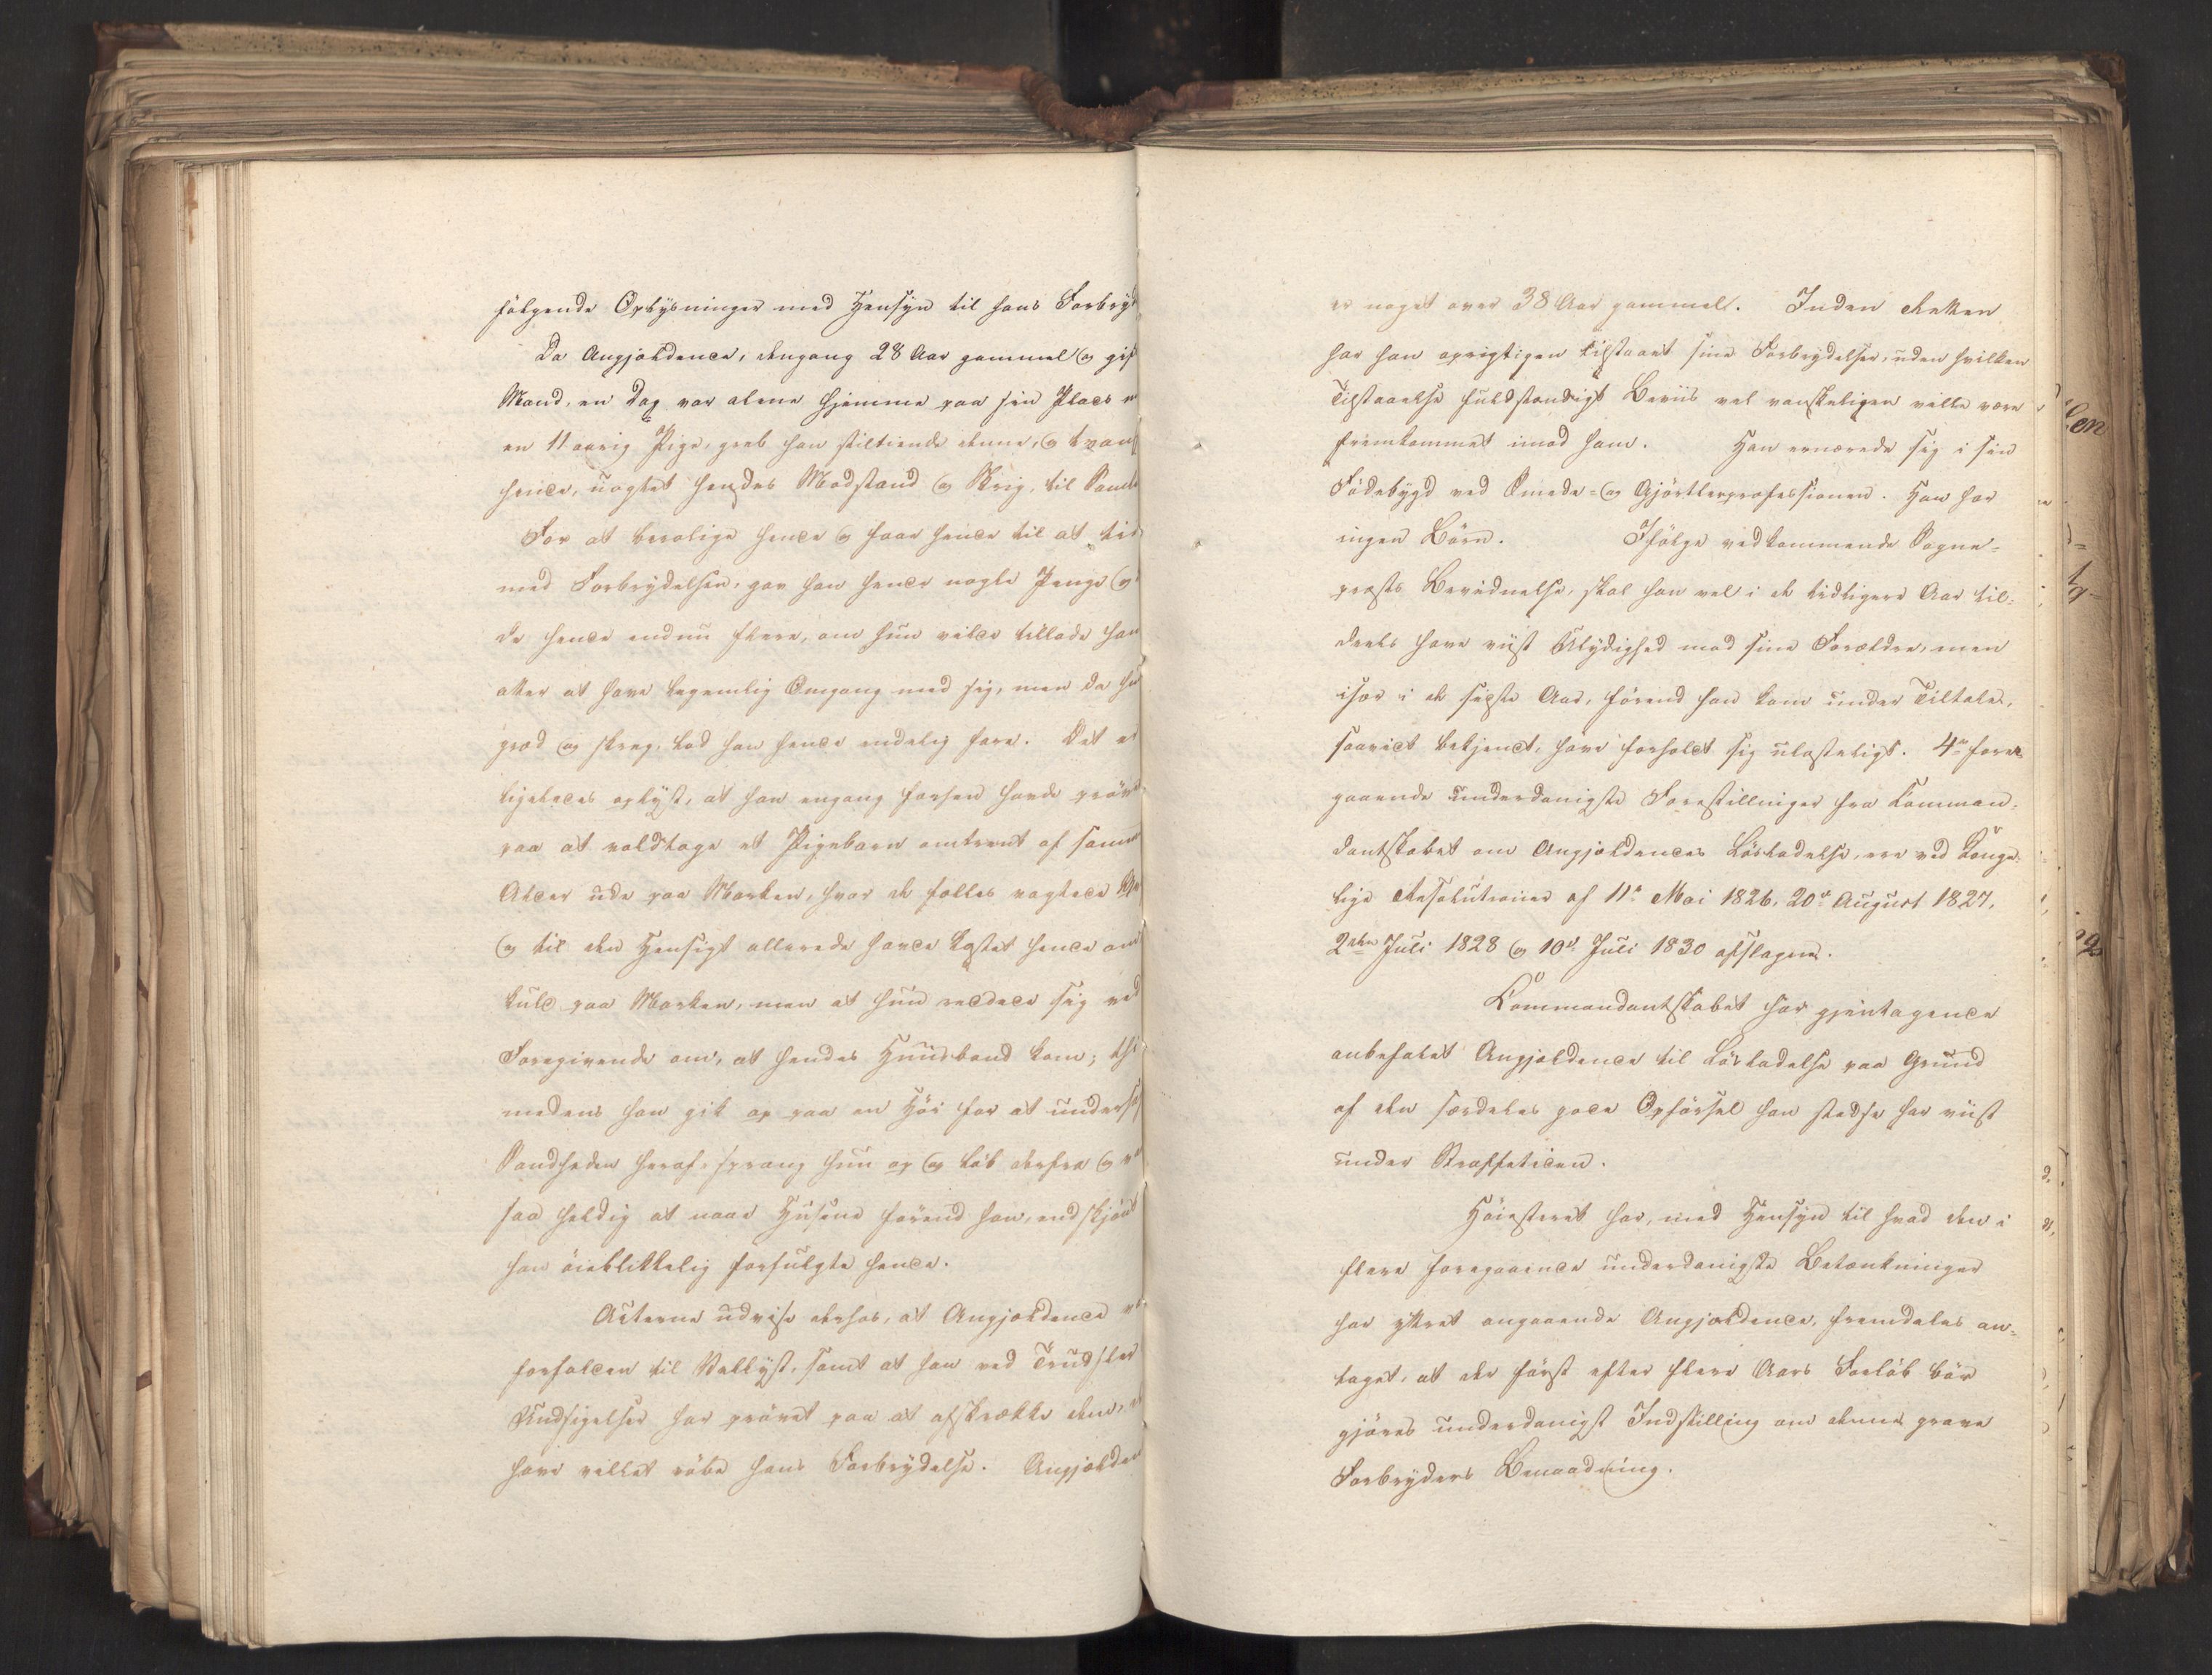 følgende Oplysninger med Hensyn til hans Forbryd
Da Angjældende, dengang 28 Aar gammel og gift
Mand, en Dag var alene hjemme paa sin Plads m
en 11 aarig Pige, greb han stiltiende denne, og tvang
hende, uagtet hendes Modstand og Skrig, til Samle
For at berolige hende og faae hende til at tie
med Forbrydelsen, gav han hende nogle Penge og
de hende endnu flere, om hun vilde tillade ham
atter at have legemlig Omgang med sig, men da hun
græd og skreg, lod han hende endelig fare. Det er
ligeledes oplyst, at han engang forhen havde prøvet
paa at voldtage et Pigebarn omtrent af samme
Alder ude paa Marken, hvor de fælles vogtede
og til den Hensigt allerede havde kastet hende om
kuld paa Marken, men at hun reddede sig ved
Foregivende om, at hendes Huusbond kom; thi
medens han gik op paa en Høi for at unders
Sandheden heraf, sprang hun op og løb derfra og v
saa heldig at naae Husene førend han, endskjønt
han øieblikkelig forfulgte hende.
Acterne udvise derhos, at Angjældende
forfalden til Vellyst, samt at han ved Trudsler
Undsigelser har prøvet paa at afskrække dem,
have villet røbe hans Forbrydelse. Angjælden
er noget over 38 Aar gammel. Inden Retten
har han oprigtigen tilstaaet sine Forbrydelser, uden hvilken
Tilstaaelse fuldstændigt Beviis vel vanskeligen vilde være
fremkommet imod ham. Han ernærede sig i sin
Fødebygd ved Smede- og Gjørtlerprofessionen. Han har
ingen Børn. Ifølge vedkommende Sogne-
præsts Bevidnelse, skal han vel i de tidligere Aar til-
deels have viist Ulydighed mod sine Forældre, men
især i de sidste Aar, førend han kom under Tiltale,
saavidt bekjendt, have forholdt sig ulasteligt. 4re fore-
gaaende underdanigste Forestillinger fra Komman-
dantskabet om Angjældendes Løsladelse, ere ved Konge-
lige Resolutioner af 11te Mai 1826, 20de August 1827,
2den Juli 1828 og 10de Juli 1830 afslagne.
Kommandantskabet har gjentagende
anbefalet Angjældende til Løsladelse paa Grund
af den særdeles gode Opførsel han stedse har viist
under Straffetiden.
Høiesteret har, med Hensyn til hvad den i
flere foregaaende underdanigste Betænkninger
har yttret angaaende Angjældende, fremdeles an-
taget, at der først efter flere Aars Forløb bør
gjøres underdanigst Indstilling om denne grove
Forbryders Benaadning.